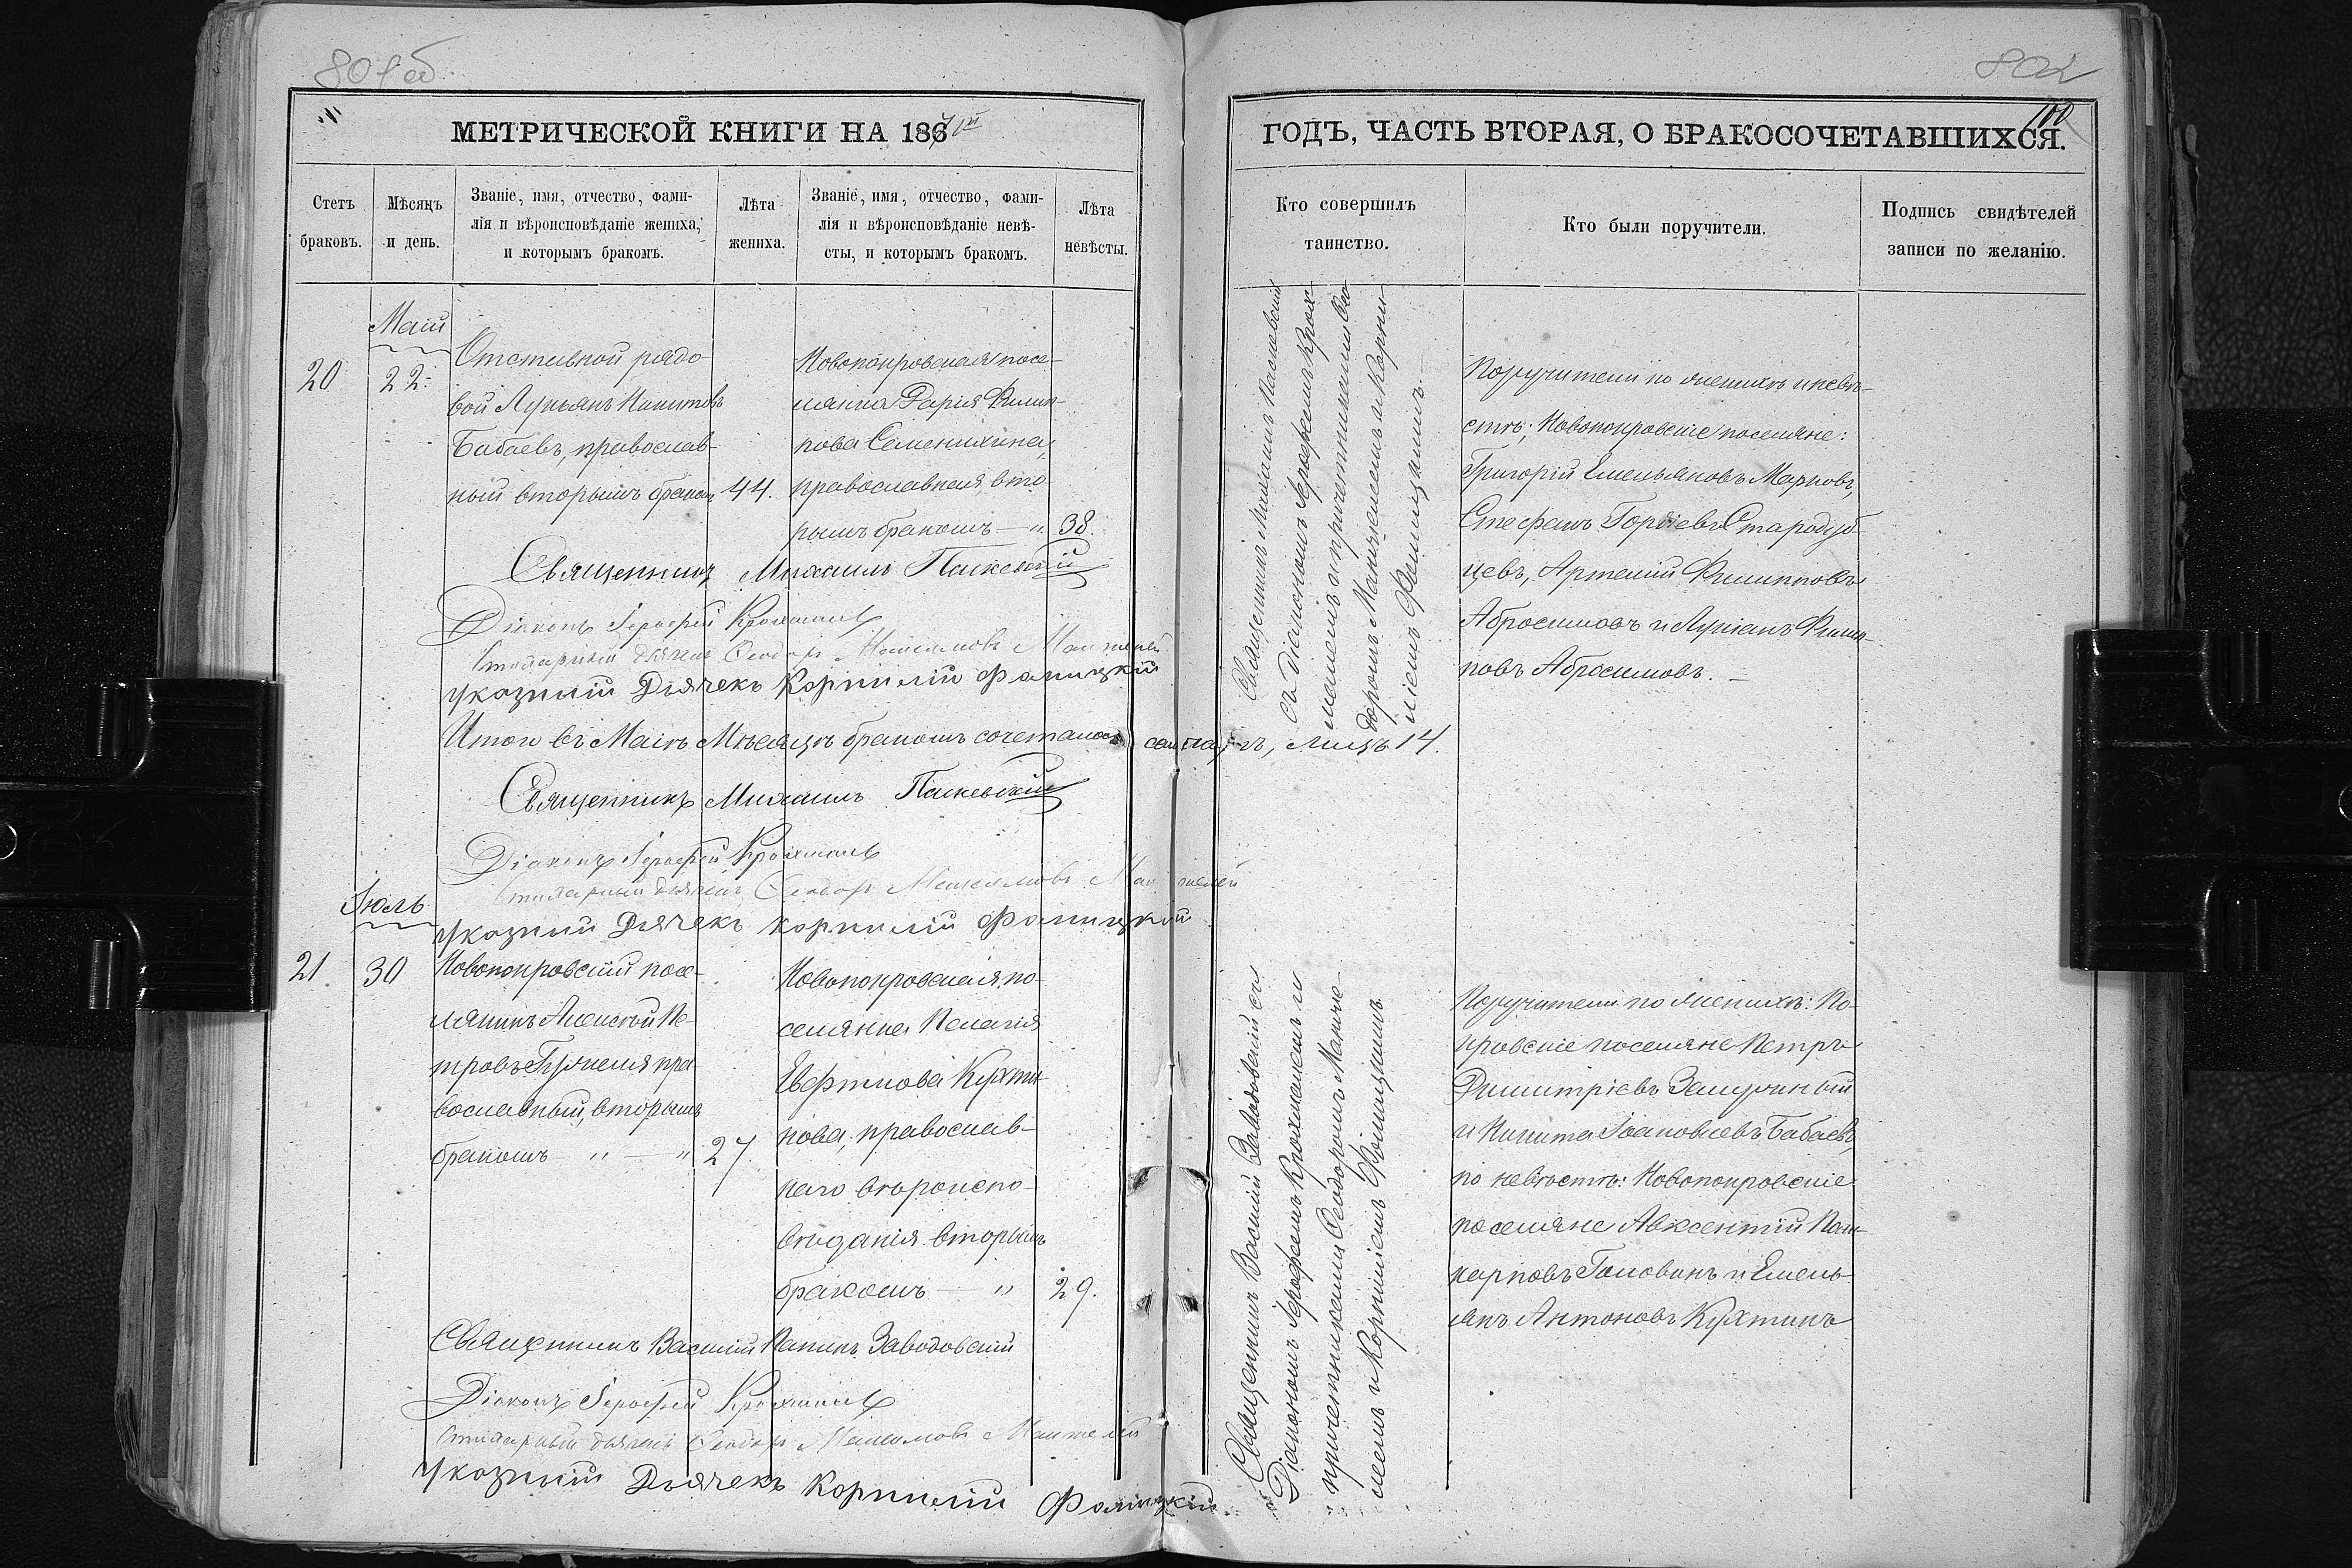 801об
802
100
МЕТРИЧЕСКОЙ КНИГИ НА 1867й
ГОДЪ, ЧАСТЬ ВТОРАЯ, О БРАКОСОЧЕТАВШИХСЯ.
Счетъ браковъ.
Мѣсяцъ и день.
Званіе, имя, отчество, фами-
лія и вѣроисповѣданіе жениха,
и которымъ бракомъ.
Лѣта жениха.
Званіе, имя, отчество, фами-
лія и вѣроисповѣданіе невѣ-
сты, и которымъ бракомъ.
Лѣта невѣсты.
Кто совершилъ
таинство.
Кто были поручители.
Подпись свидѣтелей
записи по желанію.
Маій
20
22
Отставной рядо
вой Лукьянъ Никитовъ
Бабаевъ, православ-
ный вторымъ бракомъ
44.
Новопокровская посе-
лянка Дарія Филип-
пова Семенихина,
православная, вто
рымъ бракомъ — "
38.
Священникомъ Михаиломъ Паскевскимъ
съ Діакономъ Іерофеемъ Крох-
малемъ и причетниками Ѳео-
доромъ Мантелеемъ и Корни-
ліемъ Фолицкимъ.
Поручители по женихѣ и невѣ-
стѣ: Новопокровскіе поселяне:
Григорій Емельяновъ Марковъ,
Стефанъ Гордіевъ Стародуб-
цевъ, Артемій Филипповъ
Абросимовъ и Лукіанъ Филип-
повъ Абросимовъ. —
Священникъ Михаилъ Паскевскій
Діаконъ Іерофей Крохмаль
дьячекъ Ѳеодоръ Максимовъ Мантелей
Указный Дьячекъ Корнилій Фолицкій
Итого въ Маіѣ Мѣсяцѣ бракомъ сочеталось лицъ 14.
Священникъ Михаилъ Паскевскій
Діаконъ Іерофей Крохмаль
дьячекъ Ѳеодоръ Максимовъ Мантелей
Указный Дьячекъ Корнилій Фолицкій
Іюль
21.
30
Новопокровскій посе-
лянинъ Алексѣй Пе-
тровъ пра-
вославный, вторымъ
бракомъ — " — "
27
Новопокровская по-
селянка Пелагія
Евфимова Кухти-
нова, православ-
наго вѣроиспо-
вѣданія вторымъ
бракомъ — "
29.
Священникомъ Василій Заводовскій съ
Діакономъ Іерофеемъ Крохмалемъ и
причетниками Ѳеодоромъ Манте-
леемъ и Корниліемъ Фолицкимъ
Поручители по женихѣ: По-
кровскіе поселяне Петръ
Димитріевъ
и Никита Іаковлевъ Бабаевъ,
по невѣстѣ: Новопокровскіе
поселяне Авксентій Пан-
карповъ Головинъ и Емель-
янъ Антоновъ Кухтинъ
Священникъ Василій Папинъ Заводовскій
Діаконъ Іерофей Крохмаль
дьячекъ Ѳеодоръ Максимовъ Мантелей
Указный Дьячекъ Корнилій Фолицкій